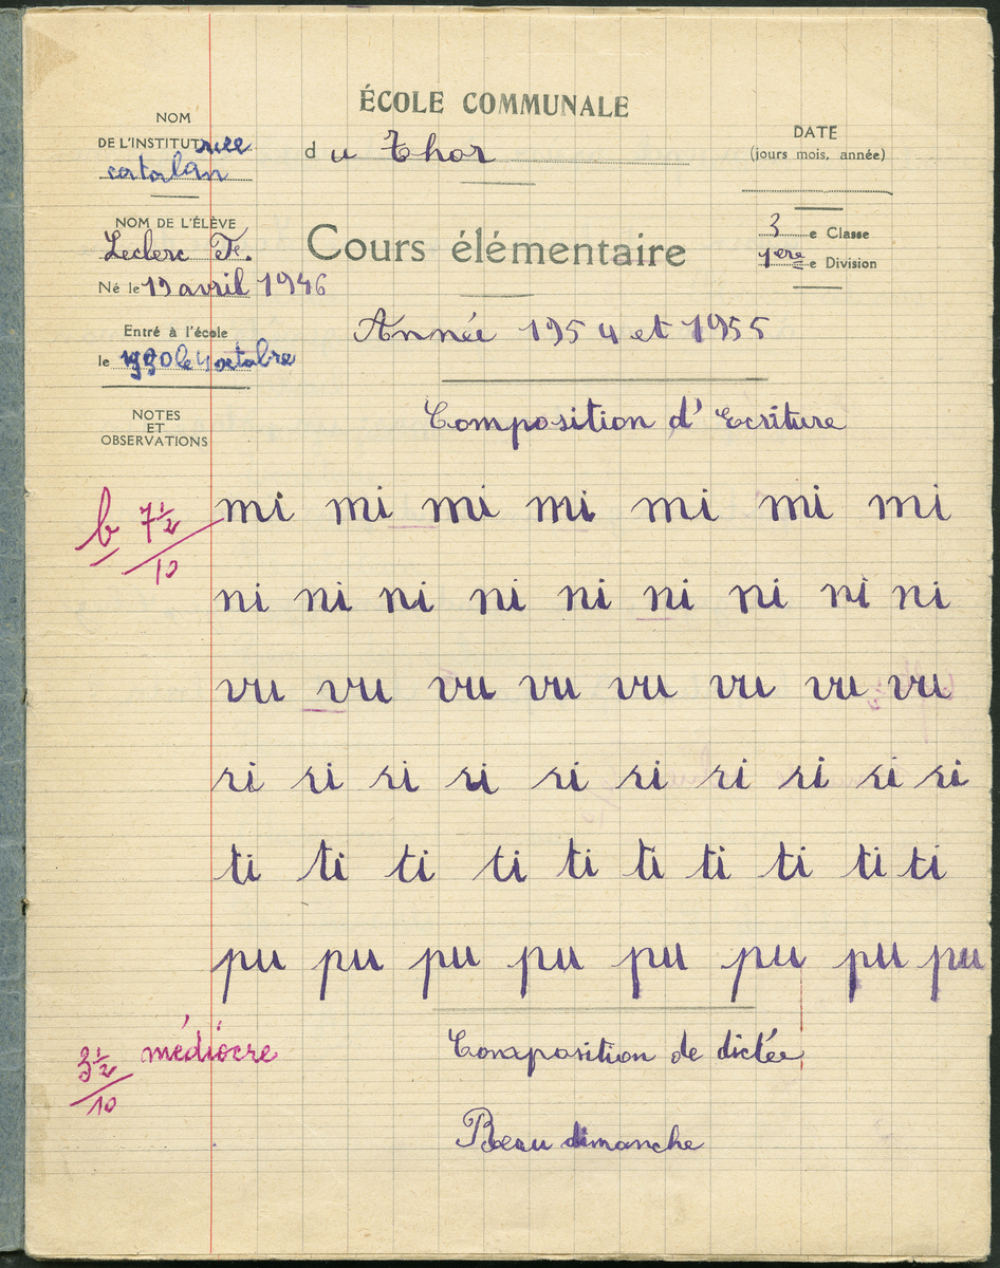 ÉCOLE COMMUNALE
du Thor
NOM
DE L'INSTITUTrice
catalan
DATE
(jours mois, année)
NOM DE L'ÉLÈVE
Leclerc F.
Né le 19 avril 1946
Cours élémentaire
3 e Classe
1ère e Division
Entré à l'école
le 1950 le 4 octobre
Année 1954 et 1955
NOTES
ET
OBSERVATIONS
Composition d'Ecriture
b 7 1/2
10
mi mi mi mi mi mi mi
ni ni ni ni ni ni ni ni ni
vu vu vu vu vu vu vu vu
ri ri ri ri ri ri ri ri ri ri
ti ti ti ti ti ti ti ti ti ti
pu pu pu pu pu pu pu pu
3 1/2
10
médiocre
Composition de dictée
Beau dimanche